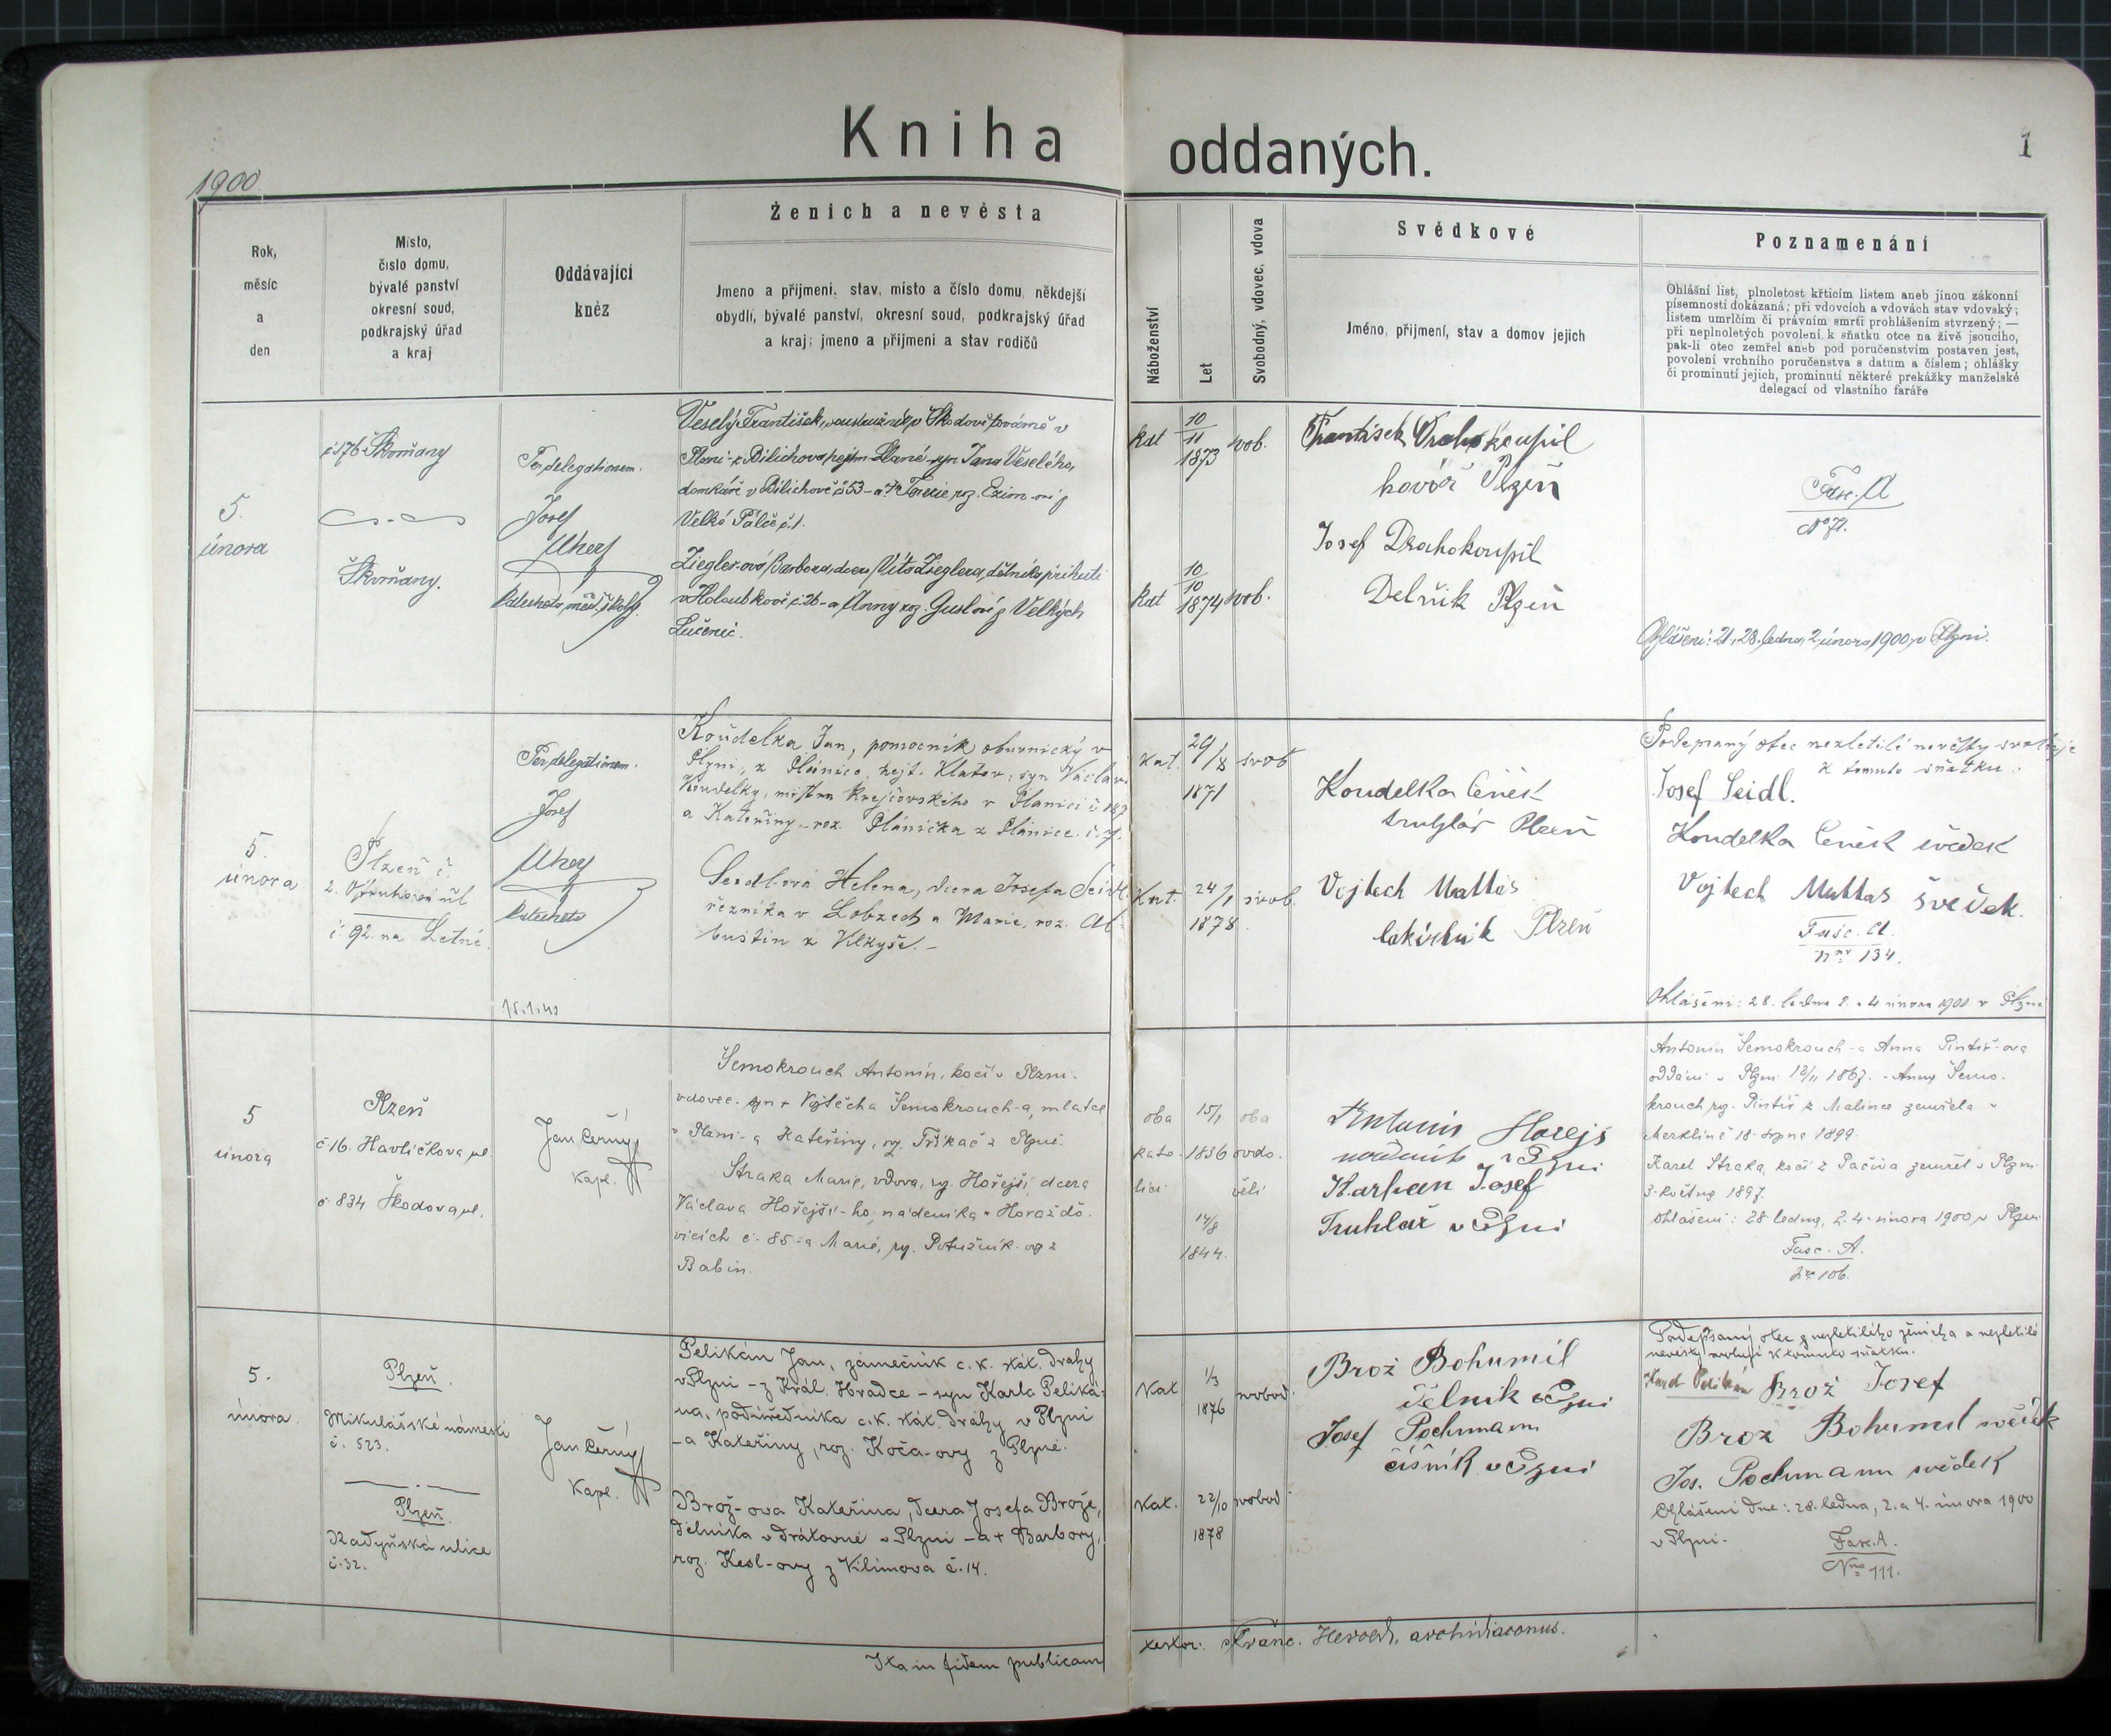 Kniha oddaných.
1
1900
Rok,
měsíc
a
den
Místo,
číslo domu,
bývalé panství
okresní soud,
podkrajský úřad
a kraj
Oddávající
kněz
Ženich a nevěsta
Jmeno a příjmení, stav, místo a číslo domu, někdejší
obydlí, bývalé panství, okresní soud, podkrajský úřad
a kraj; jmeno a příjmení a stav rodičů
Náboženství
Let
Svobodný, vdovec, vdova
Svědkové
Jméno, příjmení, stav a domov jejich
Poznamenání
Ohlášní list, plnoletost křticím listem aneb jinou zákonní
písemností dokázaná; při vdovcích a vdovách stav vdovský;
listem umrlčím či právním smrti prohlášením stvrzený; —
při neplnoletých povolení k sňatku otce na živě jsoucího,
pak-li otec zemřel aneb pod poručenstvím postaven jest,
povolení vrchního poručenstva s datum a číslem; ohlášky
či prominutí jejich, prominutí některé prekážky manželské
delegací od vlastního faráře
5.
února
č 176 Škvrňany
Škvrňany.
Per delegationem.
Josef
Uherj
Veselý František,
Škodově továrně v
Plzni - z Bilichova, hejtm. Slané - syn Jana Veselého,
domkáře v Bilichově č 53 - a Terezie roz.
Zieglerova Barbora, dcera Víta Zieglera, dělníka při huti
v Holoubkově č. 26 - a Anny roz. Guslové z Velkých
kat
10
11
1873
svob.
kat
10
10
1874
svob.
František Drahokoupil
kovář Plzeň
Josef Drahokoupil
Delník Plzeň
Fasc. A
No 71.
Ohlášení: 21, 28. ledna, 2. února 1900 v Plzni.
5.
února
Plzeň č.
č. 92. na Letné.
Per delegationem.
Josef
Uherj
katecheta
15.1.40
Koudelka Jan, pomocník obuvnický v
Plzni, z Plánice, hejt. Klatov, syn Václava
Koudelky, mistra krejčovského v Plánici č 187
a Kateřiny roz. Plánička z Plánice
Seidlová Helena, dcera Josefa Seidl
řezníka v Lobzech a Marie, roz.
kat.
29/8
1871
svob
Kat.
24/1
1878.
svob.
Koudelka Čeněk
truhlář Plzeň
Vojtech Mattas
lakýrník Plzeň
Podepsaný otec nezletilé nevěsty svoluje
k tomuto sňatku.
Josef Seidl.
Koudelka Čeněk svědek
Vojtech Mattas švedek.
Fasc. A.
134.
Ohlášení: 28. ledna 2. a 4. února 1900 v Plzni
5
února
Plzeň
č 16. Havlíčkova ul.
č 834 Škodova ul.
Jan Černý
Kapl.
Šemokrouch Antonín, kočí v Plzni.
vdovec. syn + Vojtěcha Šemokrouch-a, mlatce
v Plzni - a Kateřiny, rz. Trškač z Plzně.
Straka Marie, vdova, rz. Hořejší, dcera
Václava Hořejší-ho, nádeníka v Horaždo-
vicích č. 85 - a Marie, rz.
Babin.
oba
kato-
lici
15/1
1836
14/8
1844.
oba
ovdo-
věli
Antonín Horejs
v Plzni
Karhan Josef
Truhlař v Plzni
Antonín Šemokrouch - a Anna
oddáni v Plzni 12/11 1867. - Anna Šemo-
krouch rz. z Malince zemřela v
Merklíně 18. srpna 1899.
Karel Straka, kočí z Pačiva zemřel v Plzni
3. května 1897.
Ohlášení: 28 ledna, 2. 4. února 1900 v Plzni
Fasc. A.
106.
5.
února.
Plzeň.
Mikulášské náměstí
č. 523.
Plzeň.
Radyňská ulice
č. 32.
Jan Černý
Kapl.
Pelikán Jan, zámečník c. k. stát. dráhy
v Plzni - z Král. Hradce - syn Karla Peliká-
na, podúředníka c. k. stát. dráhy v Plzni
- a Kateřiny, roz. Koča-ovy z Plzně.
Brož-ova Kateřina, dcera Josefa Brože,
dělníka v drátovně v Plzni - a + Barbory,
roz. Kesl-ovy z Kilimova č. 14.
Kat
1/3
1876
svobod.
Kat.
22/10
1878
svobod.
Brož Bohumil
dělník v Plzni
Josef Pochmann
číšník v Plzni
Podepsaný otec z nezletilého ženicha a nezletilé
nevěsty svolují k tomuto sňatku.
Karel Pelikán Brož Josef
Brož Bohumil svědek
Jos. Pochmann svědek
Ohlášení dne: 28. ledna, 2. a 4. února 1900
v Plzni.
Fasc. A.
Nro 111.
Ita in fidem publicam
testor: Franc. Herold, archidiaconus.